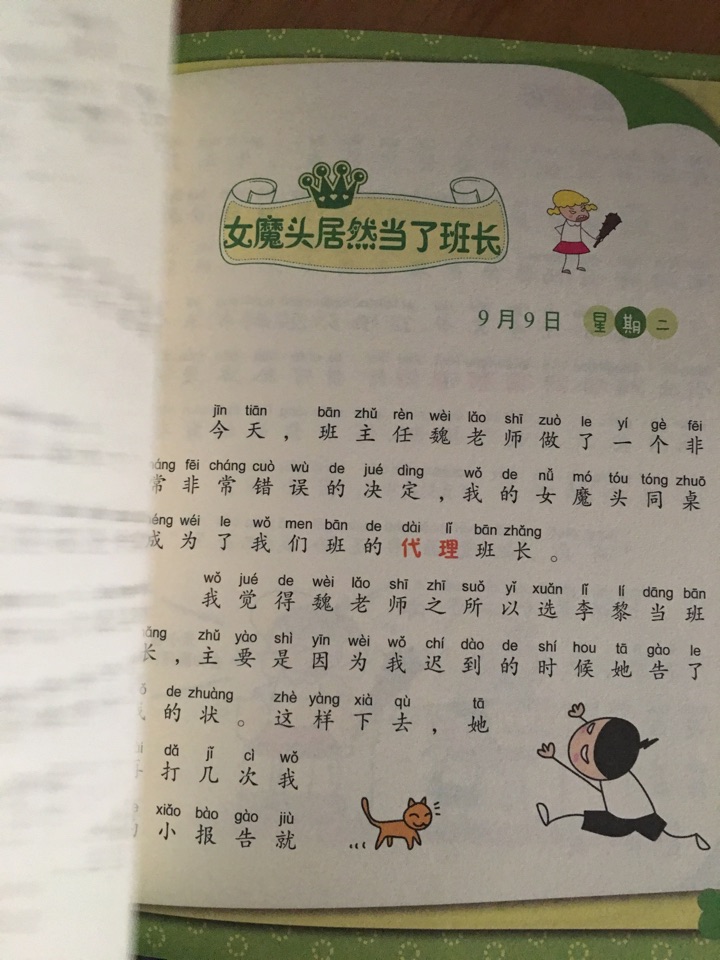 女魔头居然当了班长
9月9日 星期二
jīn tiān bān zhǔ rèn wèi lǎo shī zuò le yí gè fēi
今天，班主任魏老师做了一个非
fēi cháng cuò wù de jué dìng wǒ de nǚ mó tóu tóng zhuō
常非常错误的决定，我的女魔头同桌
wéi le wǒ men bān de dài lǐ bān zhǎng
成为了我们班的代理班长。
wǒ jué de wèi lǎo shī zhī suǒ yǐ xuǎn lǐ lí dāng bān
我觉得魏老师之所以选李黎当班
zhǔ yào shì yīn wèi wǒ chí dào de shí hou tā gào le
长，主要是因为我迟到的时候她告了
de zhuàng zhè yàng xià qù tā
的状。这样下去，她
dǎ jǐ cì wǒ
打几次我
xiǎo bào gào jiù
小报告就